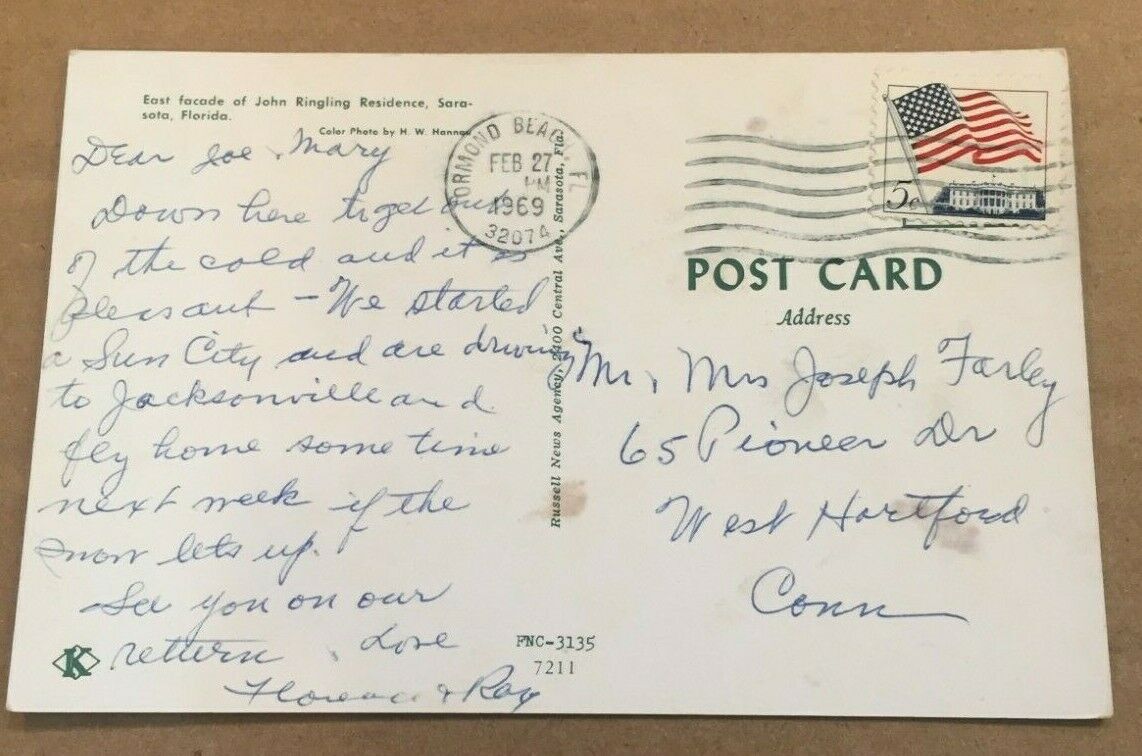 East facade of John Ringling Residence, Sara-
sota, Florida.
Color Photo by H. W. Hannau
Dear Joe & Mary
Down here to get out
of the cold and it is
pleasant - We started
a Sun City and are driving
to Jacksonville and
fly home some time
next week if the
snow lets up.
See you on our
return. Love
Florence & Ray
K
FNC-3135
7211
Russell News Agency, 2400 Central Ave., Sarasota, Fla.
ORMOND BEACH, FL
FEB 27
PM
1969
32074
5c
POST CARD
Address
Mr & Mrs Joseph Farley
65 Pioneer Dr
West Hartford
Conn